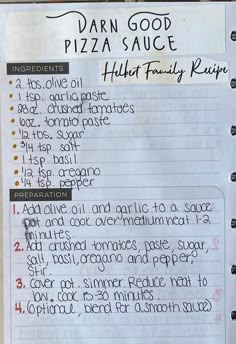 DARN GOOD
PIZZA SAUCE
INGREDIENTS
Helbert Family Recipe
• 2 tbs. olive oil
• 1 tsp. garlic paste
• 28oz. crushed tomatoes
• 6oz. tomato paste
• 1/2 tbs. sugar
• 3/4 tsp. salt
• 1 tsp basil
• 1/2 tsp. oregano
• 1/4 tsp. pepper
PREPARATION
1. Add olive oil and garlic to a sauce
pot and cook over medium heat 1-2
minutes.
2. Add crushed tomatoes, paste, sugar,
salt, basil, oregano and pepper.
Stir.
3. Cover pot. simmer. Reduce heat to
low. cook 15-30 minutes.
4. (optional, blend for a smooth sauce)